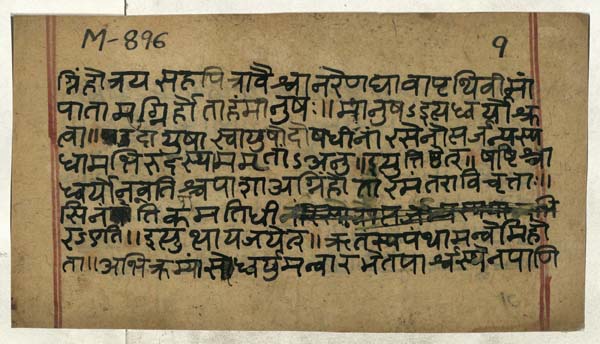 M-896
१
ग्निंहोत्राय सहपित्रावैश्वानरेणद्यावापृथिवीमां
पातामग्निर्होताहंमानुषः॥ मानुषऽइत्यध्वर्योः श्रु
त्वा॥ उदायुषा स्वायुषोदोषधीनां रसेनोत्पर्जन्यस्य
धामभिरुदस्थाममृताऽअनु॥ इत्युत्तिष्ठेत्॥ षष्टिश्चा
ध्वर्योनवतिश्चपाशाअग्निंहोतारमंतराविचृत्ताः॥
सिनन्तिपाकमतिधीर
एऽति॥ इत्युत्थायजपेत्॥ ऋतस्यपंथामन्वेमिहो
ता॥ अभिक्रम्यांसेध्वर्युमन्वारभेतपार्श्वस्थेनपाणि